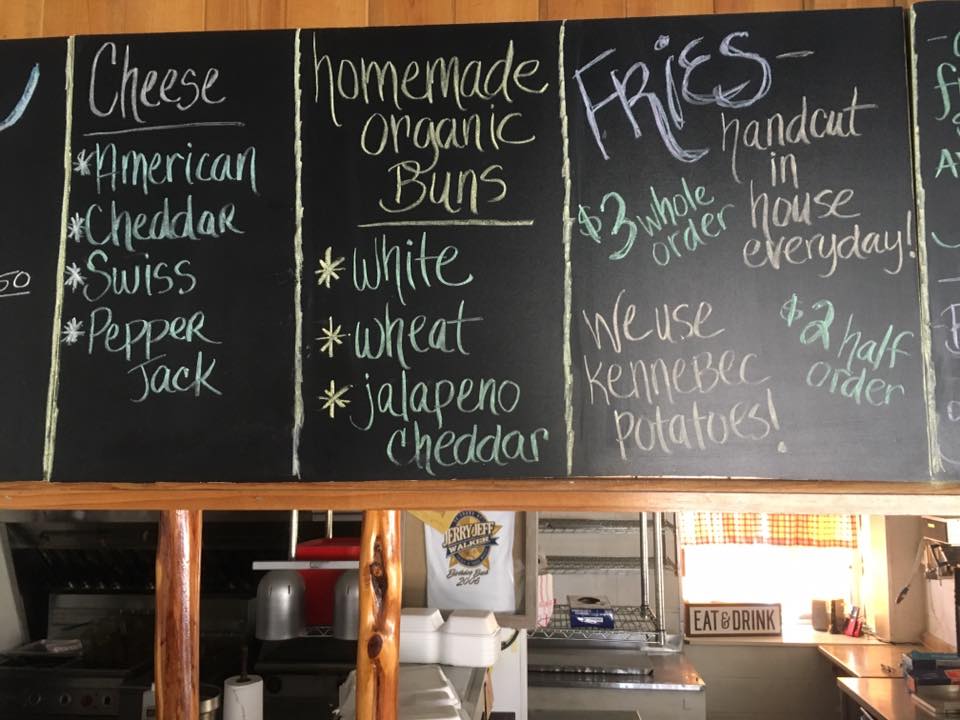 Cheese
*American
*Cheddar
*Swiss
*Pepper
Jack
50
homemade
organic
Buns
*white
*wheat
*jalapeno
cheddar
FRIES-
handcut
in
house
everyday!
$3 whole
order
We use
Kennebec
potatoes!
$2 half
order
JERRY JEFF
WALKER
Birthday Bash
2006
EAT & DRINK